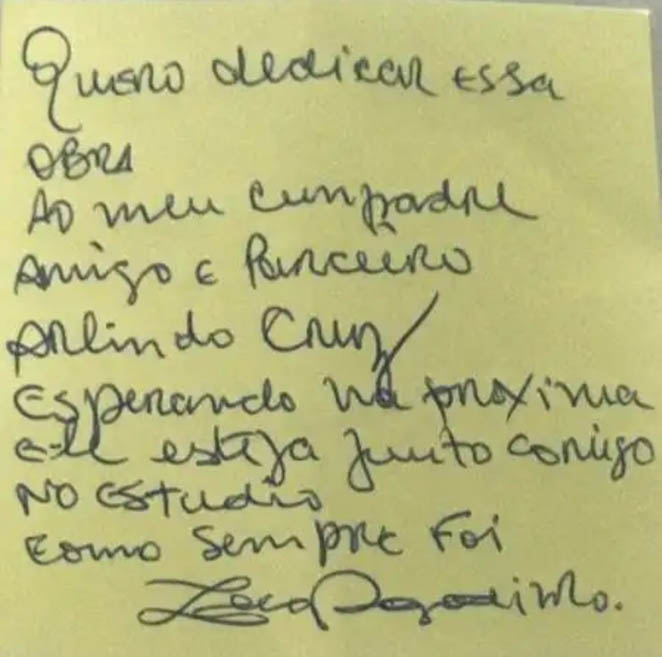 Quero dedicar essa
OBRA
Ao meu cumpadre
Amigo e Parceiro
Arlindo Cruz
Esperando na proxima
ele esteja junto comigo
No estudio
como sempre foi
Zeca Pagodinho.